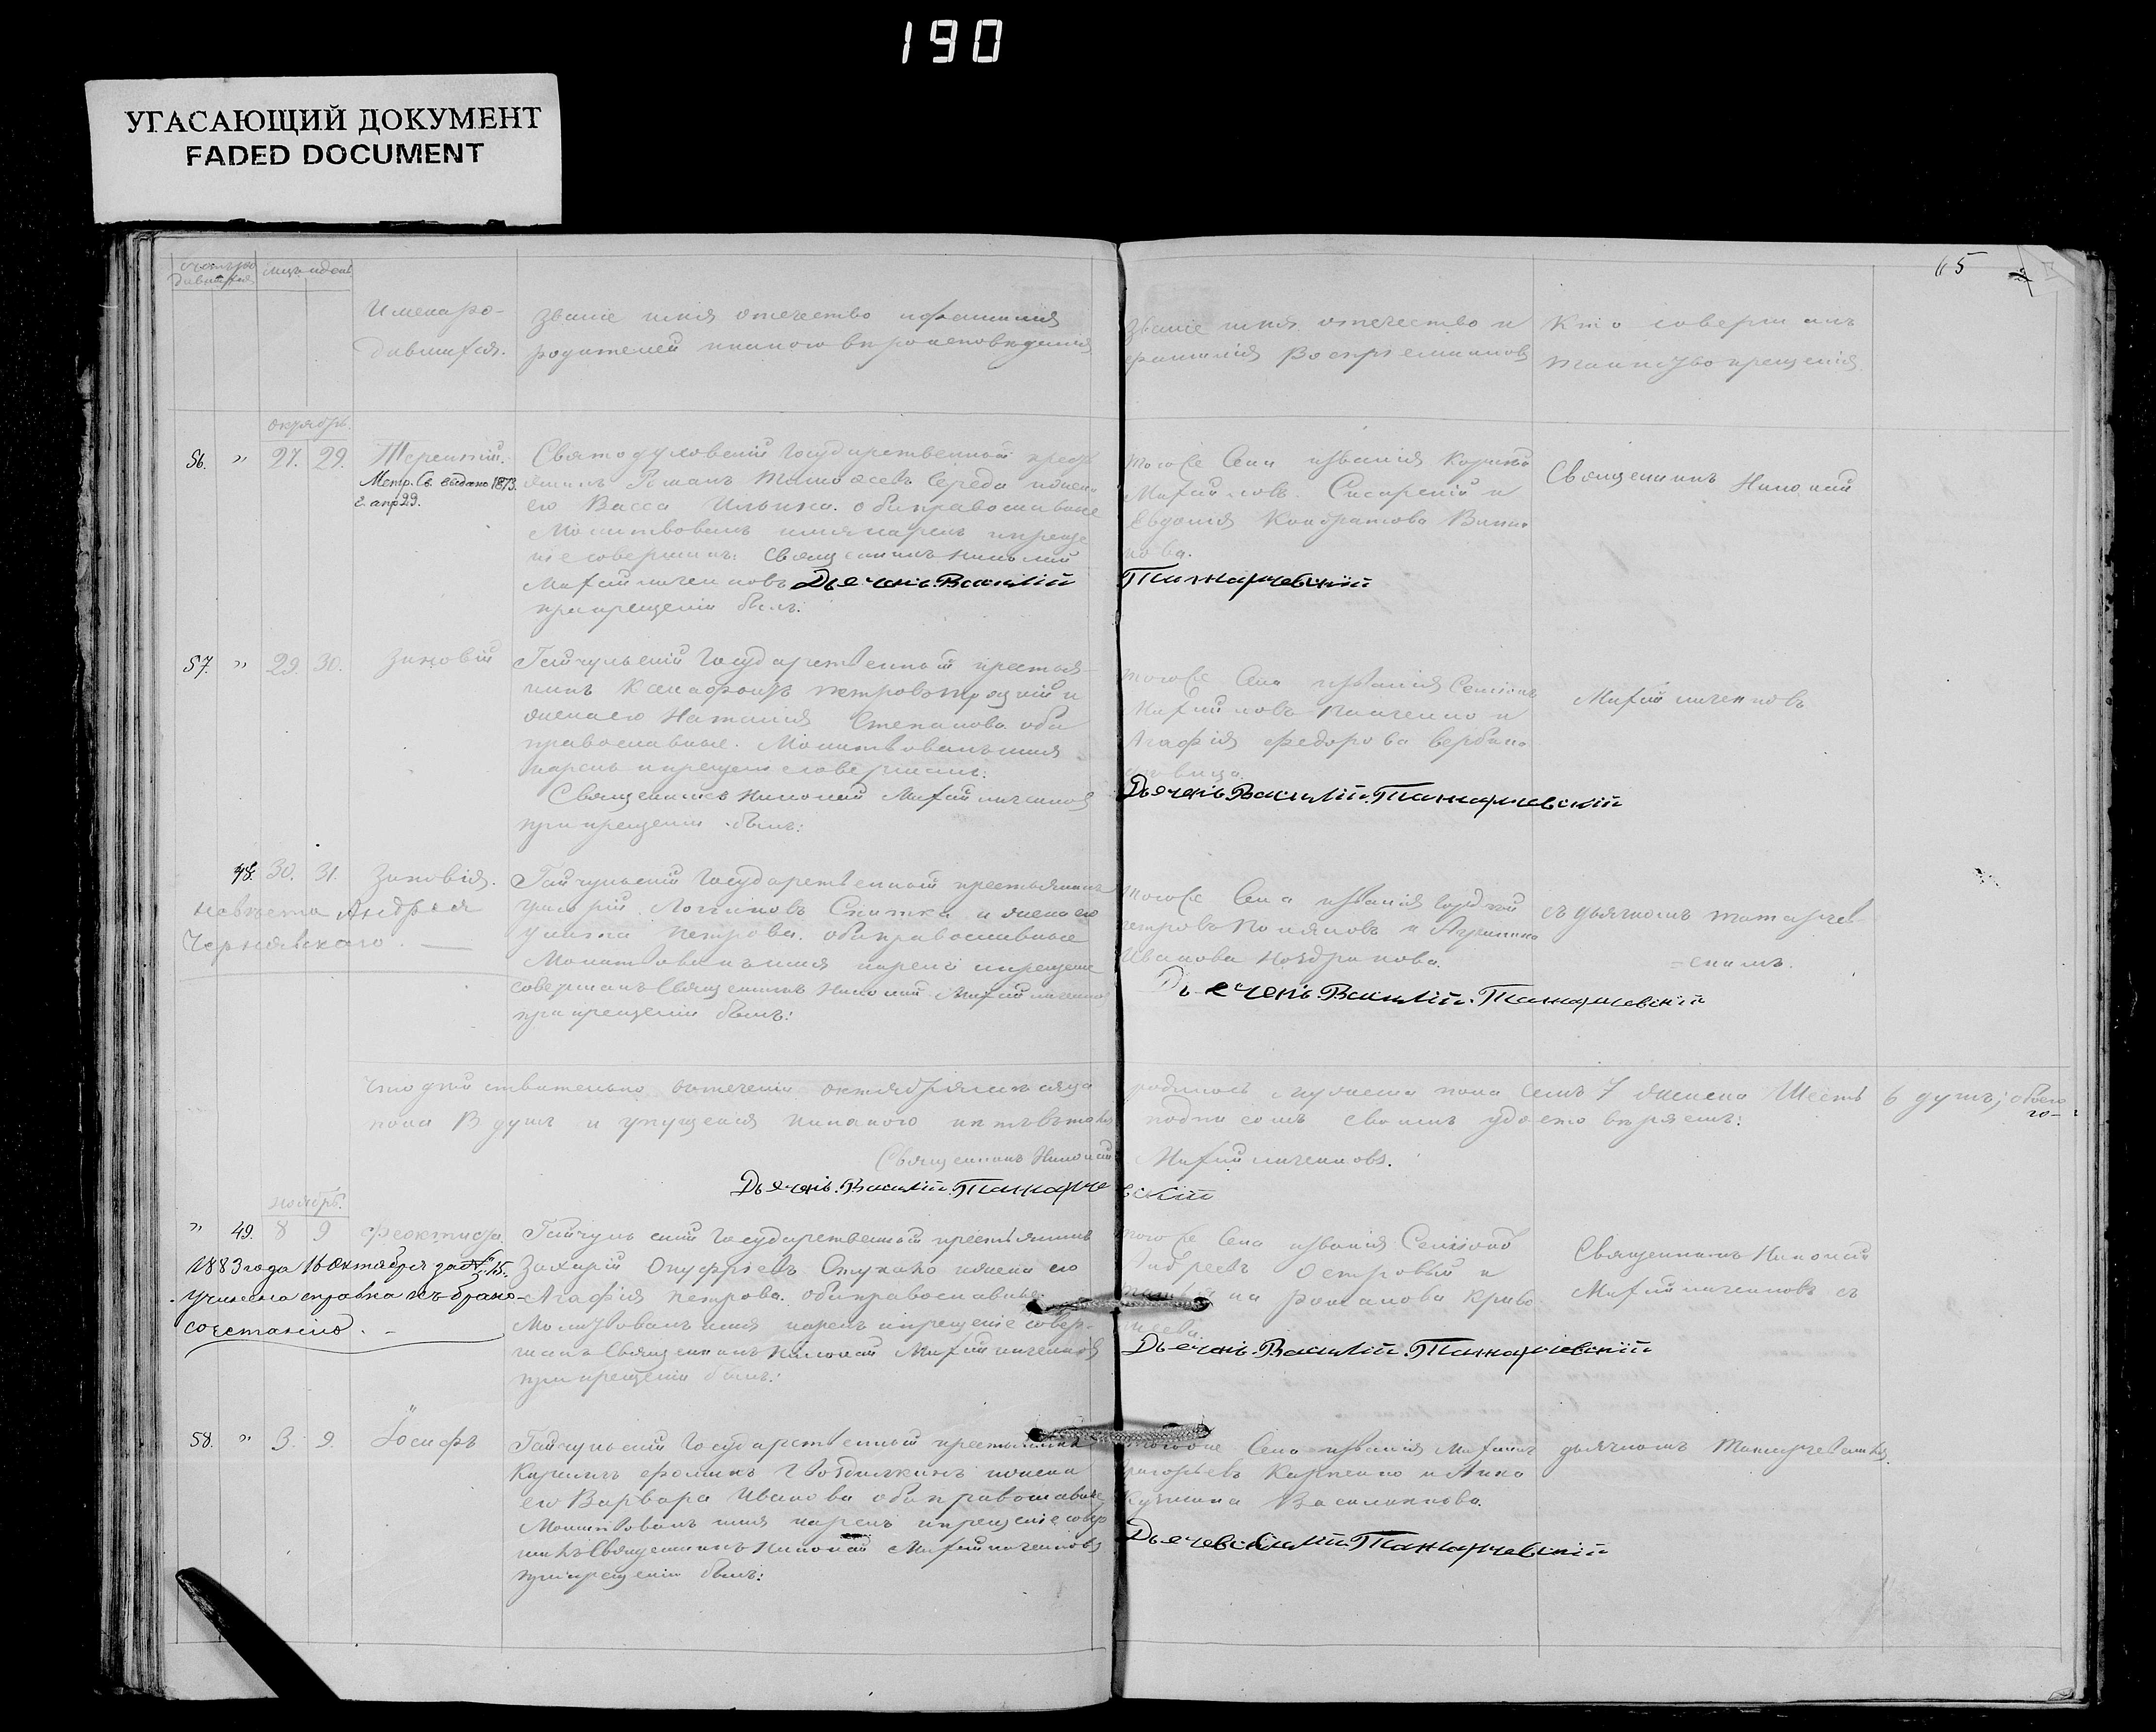 190
УГАСАЮЩИЙ ДОКУМЕНТ
FADED DOCUMENT
65
мцъ и день
Имена ро-
дившихся.
Званіе имя отечество и фамилия
родителей и какого вѣроисповѣданія
Званіе имя отечество и
фамилія Воспріемниковъ
Кто совершалъ
таинство крещенія
октябрь.
56. " 27. 29. Терентій.
Метр. Св. выдано 1873
г. апр 29.
Святодуховскій Государственный кресть
янинъ Романъ Тимофеевъ Середа и жена
его Васса Ильина. оба православные
Молитвовалъ имя нарекъ и креще
ніе совершилъ: Священникъ Николай
Михайличенковъ Дьячекъ Василій
при крещеніи былъ:
тогоже Села и званія
Михайловъ и
Евдокія Кондратова
нова.
Татарчевскій
Священникъ Николай
57. " 29. 30. Зиновій
Гайчульскій Государственный крестья-
нинъ Ксенофонтъ Петровъ и
жена его Наталія Степанова. оба
православные. Молитвовалъ имя
нарекъ и крещеніе совершилъ:
Священникъ Николай Михайличенковъ
при крещеніи былъ:
тогоже Села и званія Семіонъ
Михайловъ и
Агафія Федорова
Дьячекъ Василій Татарчевскій
Михайличенковъ
48. 30. 31. Зиновія.
невѣста Андрея
Чернявскаго.
Гайчульскій Государственный крестьянинъ
Григорій Логиновъ и жена его
Улита Петрова. оба православные
Молитвовалъ имя нарекъ и крещеніе
совершалъ Священникъ Николай Михайличенковъ
при крещеніи былъ:
тогоже Села и званія
Петровъ и
Иванова Ноздринова.
Дьячекъ Василій Татарчевскій
съ дьячкомъ Татарчев-
=скимъ.
Что дѣйствительно въ теченіи октября мѣсяца родилось мужеска пола семъ 7 женска Шесть 6 душъ; обоего
пола 13 душъ и упущенія никакого нѣтъ въ томъ подписомъ своимъ удостовѣряемъ:
Священникъ Николай Михайличенковъ.
Дьячекъ Василій Татарчевскій
ноябрь.
" 49. 8 9 Феоктиста.
1883 года 16 Октября за № 15.
учинена справка къ брако-
сочетанію.
Гайчульскій Государственный крестьянинъ
Захарій Онуфріевъ и жена его
Агафія Петрова. оба православные
Молитвовалъ имя нарекъ и крещеніе совер-
шалъ Священникъ Николай Михайличенковъ
при крещеніи былъ:
тогоже Села и званія Семіонъ
Андреевъ Островый и
Романова Криво
Дьячекъ Василій Татарчевскій
Священникъ Николай
Михайличенковъ съ
58. " 3. 9. Іосифъ
Гайчульскій Государственный крестьянинъ
Кирилъ Фоминъ и жена
его Варвара Иванова оба православные
Молитвовалъ имя нарекъ и крещеніе совер
шилъ Священникъ Николай Михайличенковъ
при крещеніи былъ:
тогоже Села и званія
Григорьевъ Карпенко и Анна
Кузмина Василинкова.
Дьячекъ Василій Татарчевскій
дьячкомъ Татарчевскимъ.